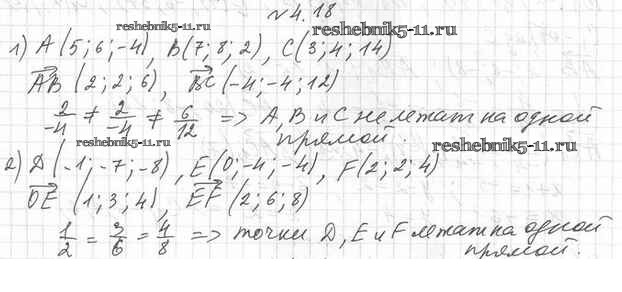 №4.18
reshebnik5-11.ru
1) A(5; 6; -4), B(7; 8; 2), C(3; 4; 14)
reshebnik5-11.ru
AB (2; 2; 6), BC (-4; -4; 12)
2/-4 ≠ 2/-4 ≠ 6/12 => A, B и C не лежат на одной
прямой.
reshebnik5-11.ru
reshebnik5-11.ru
2) D(-1; -7; -8), E(0; -4; -4), F(2; 2; 4)
DE (1; 3; 4), EF (2; 6; 8)
1/2 = 3/6 = 4/8 => точки D, E и F лежат на одной
прямой.